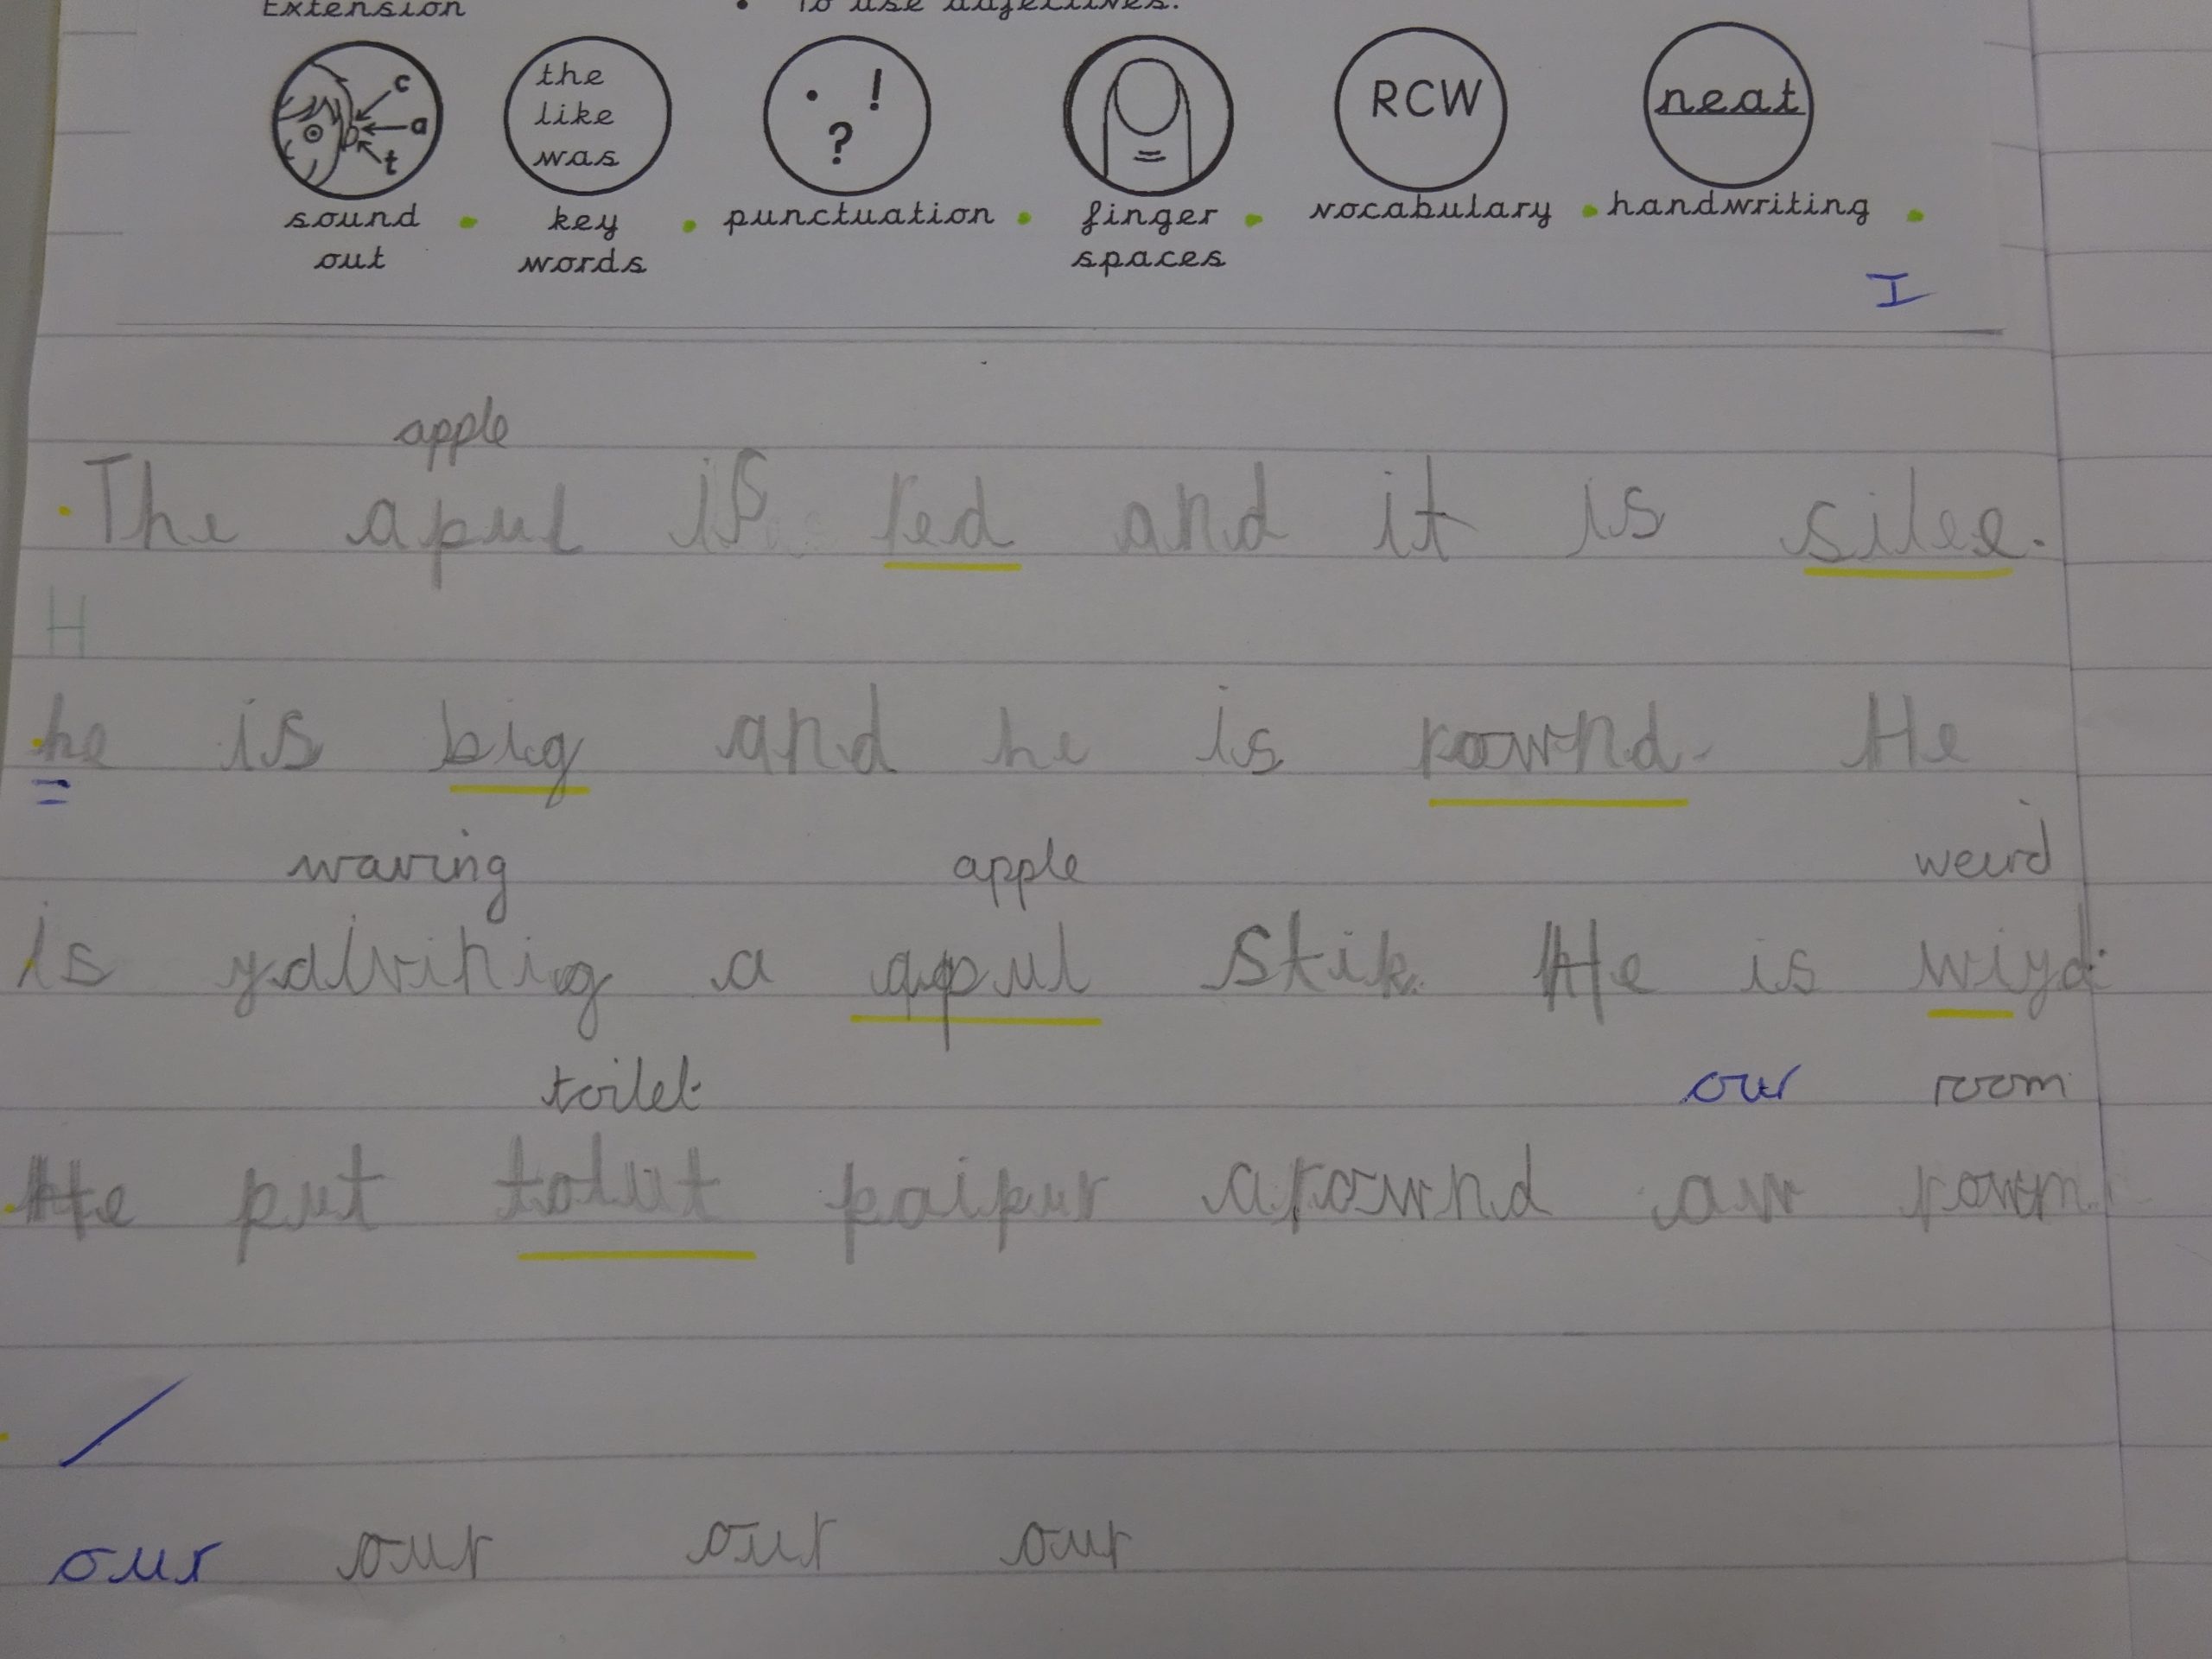 Extension • To use adjectives.
c
a
t
the
like
was
. !
?
RCW
neat
sound out
key words
punctuation
finger spaces
vocabulary
handwriting
I
apple
The apul is red and it is silee.
H
he is big and he is rownd. He
waving apple weird
is a apul stik. He is wiyd.
toilet our room
He put tolut paipur arownd aw rowm
our our our our